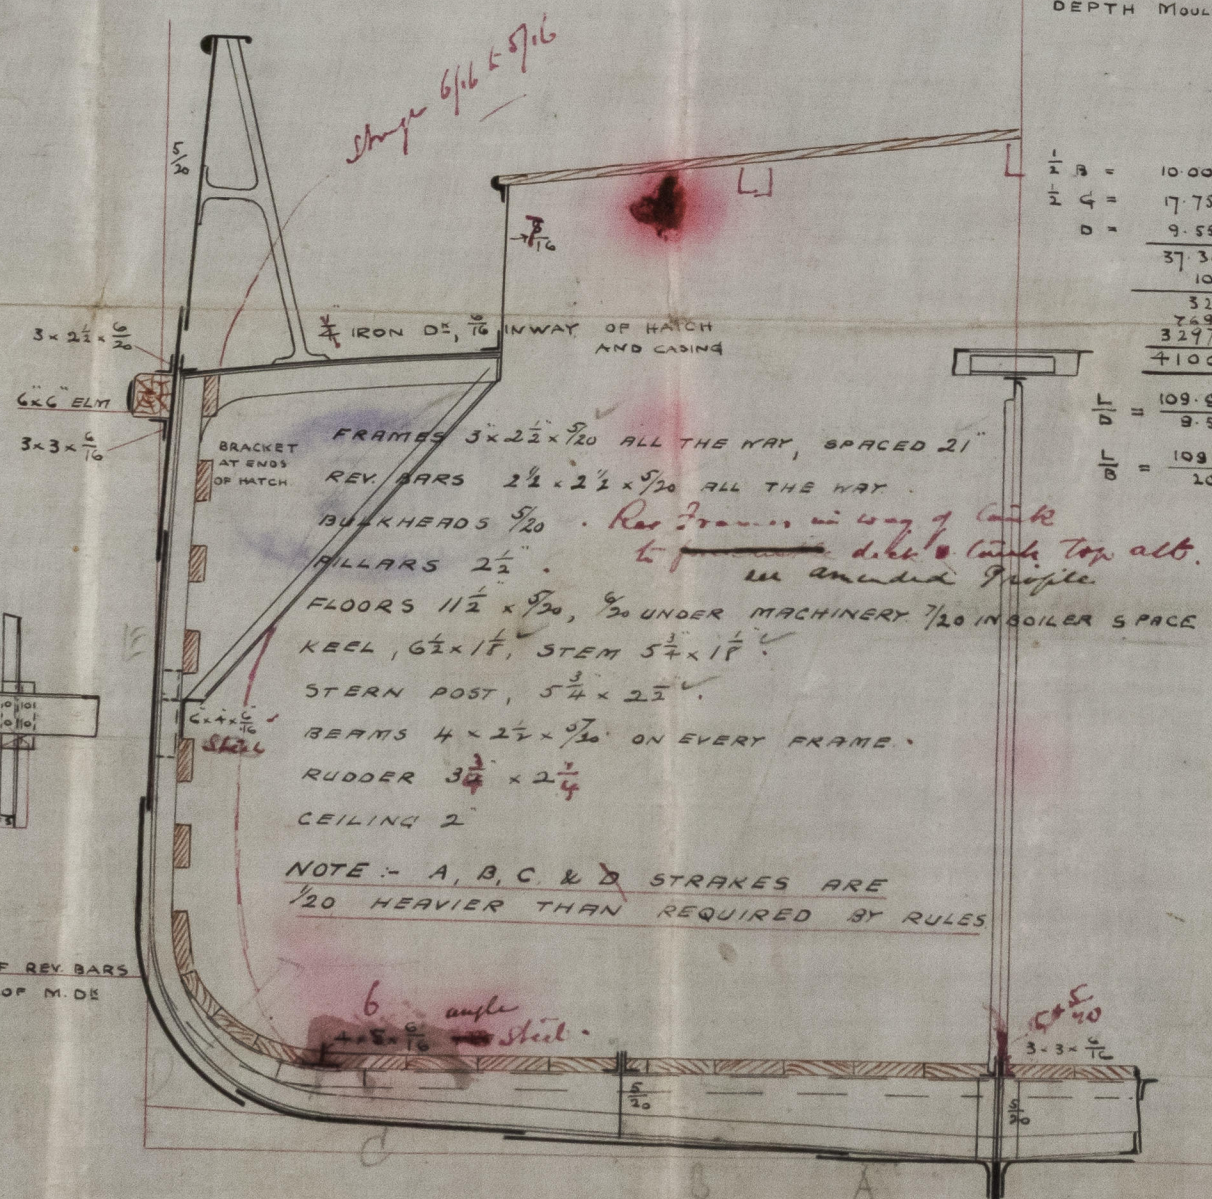 DEPTH MOUL
6/16 to 5/16
5/20
1/2 B = 10.00
1/2 G = 17.75
D = 9.55
37.3
10
32
769
3297
4100
L/D = 109.9
9.5
L/B = 109
20
/16
3 x 2 1/2 x 6/20
6"x6" ELM
3 x 3 x 6/16
1/4" IRON DK, 6/16 IN WAY OF HATCH
AND CASING
BRACKET
AT ENDS
OF HATCH
FRAMES 3" x 2 1/2" x 5/20 ALL THE WAY, SPACED 21"
REV. BARS 2 1/2 x 2 1/2 x 5/20 ALL THE WAY.
BULKHEADS 5/20 . Rev Frames in way of tank
to deck & tank top alt.
PILLARS 2 1/2" .
in amended Profile
FLOORS 11 1/2 x 5/20, 6/20 UNDER MACHINERY 7/20 IN BOILER SPACE
KEEL, 6 1/2 x 1 1/8, STEM 5 3/4 x 1 1/8 .
STERN POST, 5 3/4 x 2 1/2 .
6" x 4" x 6/16
Steel
BEAMS 4 x 2 1/2 x 5/20 ON EVERY FRAME.
RUDDER 3 3/4" x 2 1/4
CEILING 2"
NOTE :- A, B, C. & D STRAKES ARE
1/20 HEAVIER THAN REQUIRED BY RULES
F REV. BARS
OF M. DK
6 angle
4 x 5 x 6/16 Steel.
5 x 5/20
3 x 3 x 6/16
5/20
5/20
C
B
A